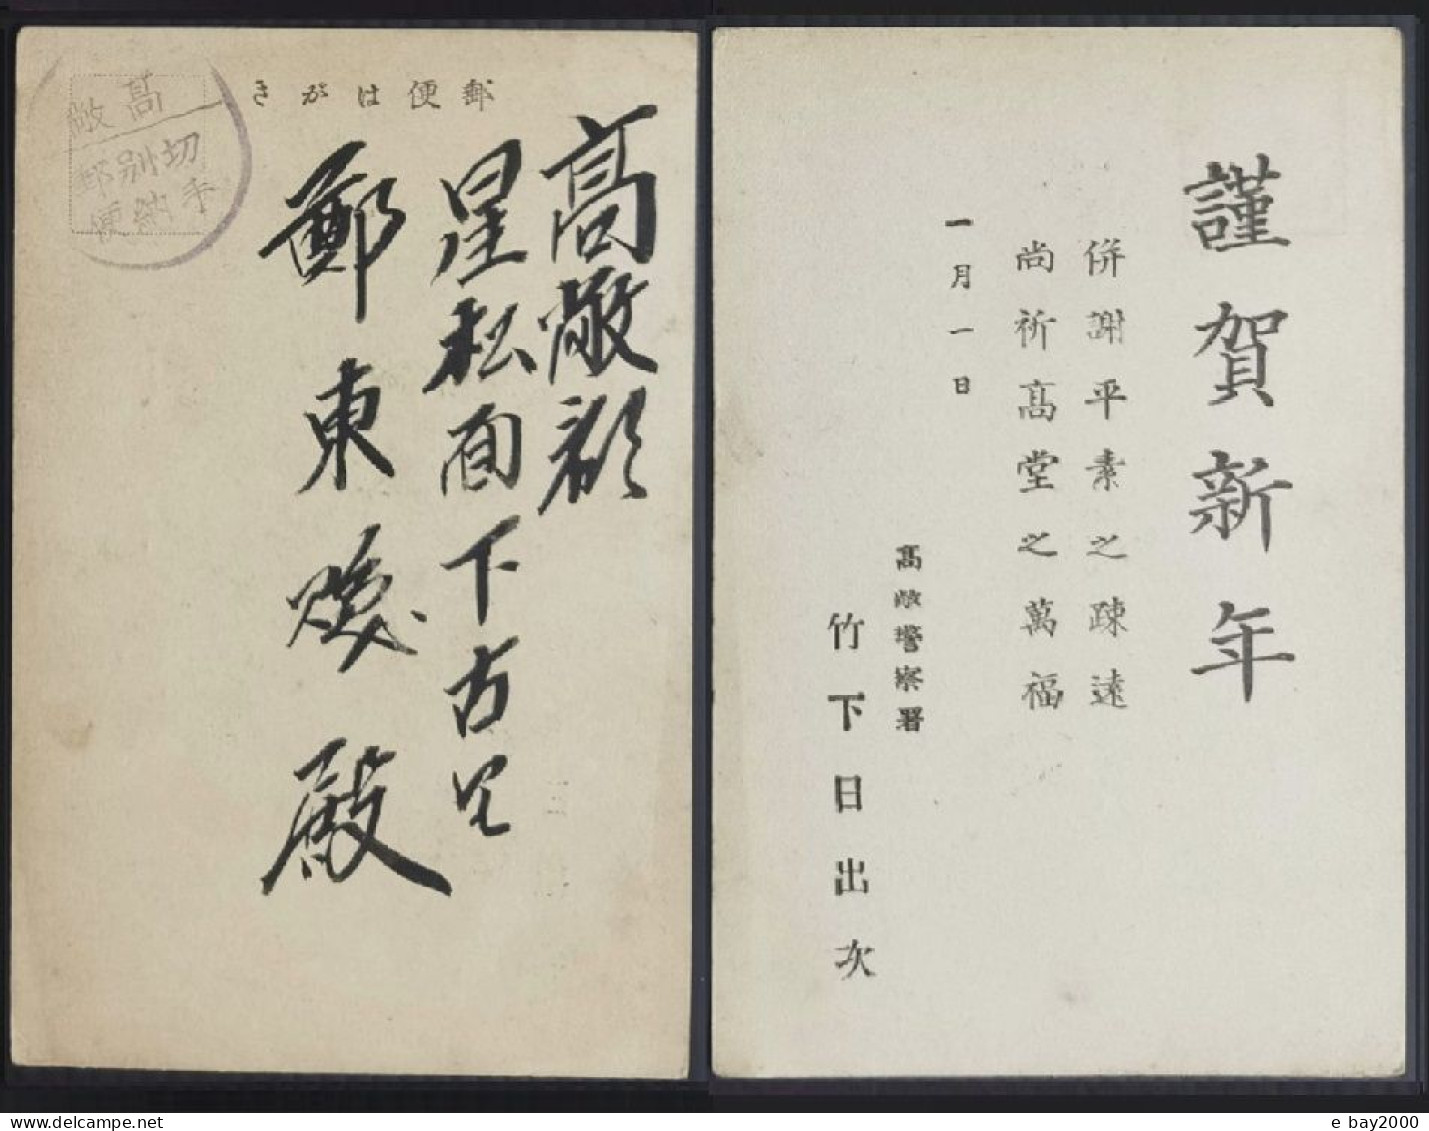 郵便はがき
高敞
切手別納郵便
高敞郡
星松面下古里
鄭東煥殿
謹賀新年
併謝平素之疎遠
尚祈高堂之萬福
一月一日
高敞警察署
竹下日出次
e bay2000